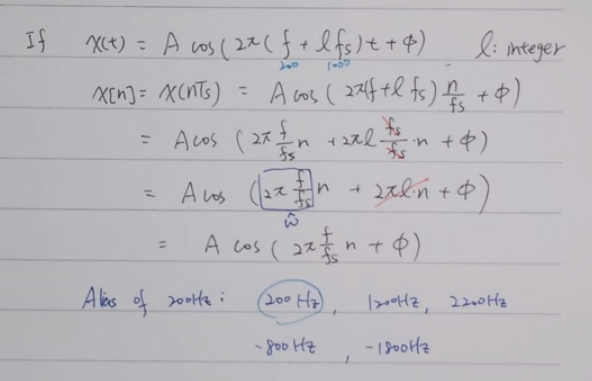 If x(t) = A cos(2π(f + lfs)t + φ) l: integer
200 1000
x[n] = x(nTs) = A cos(2π(f + l fs) n/fs + φ)
= A cos (2π f/fs n + 2πl fs/fs · n + φ)
= A cos (2π f/fs n + 2πl·n + φ)
ω̂
= A cos (2π f/fs n + φ)
Alias of 200Hz : 200 Hz, 1200Hz, 2200Hz
-800Hz, -1800Hz